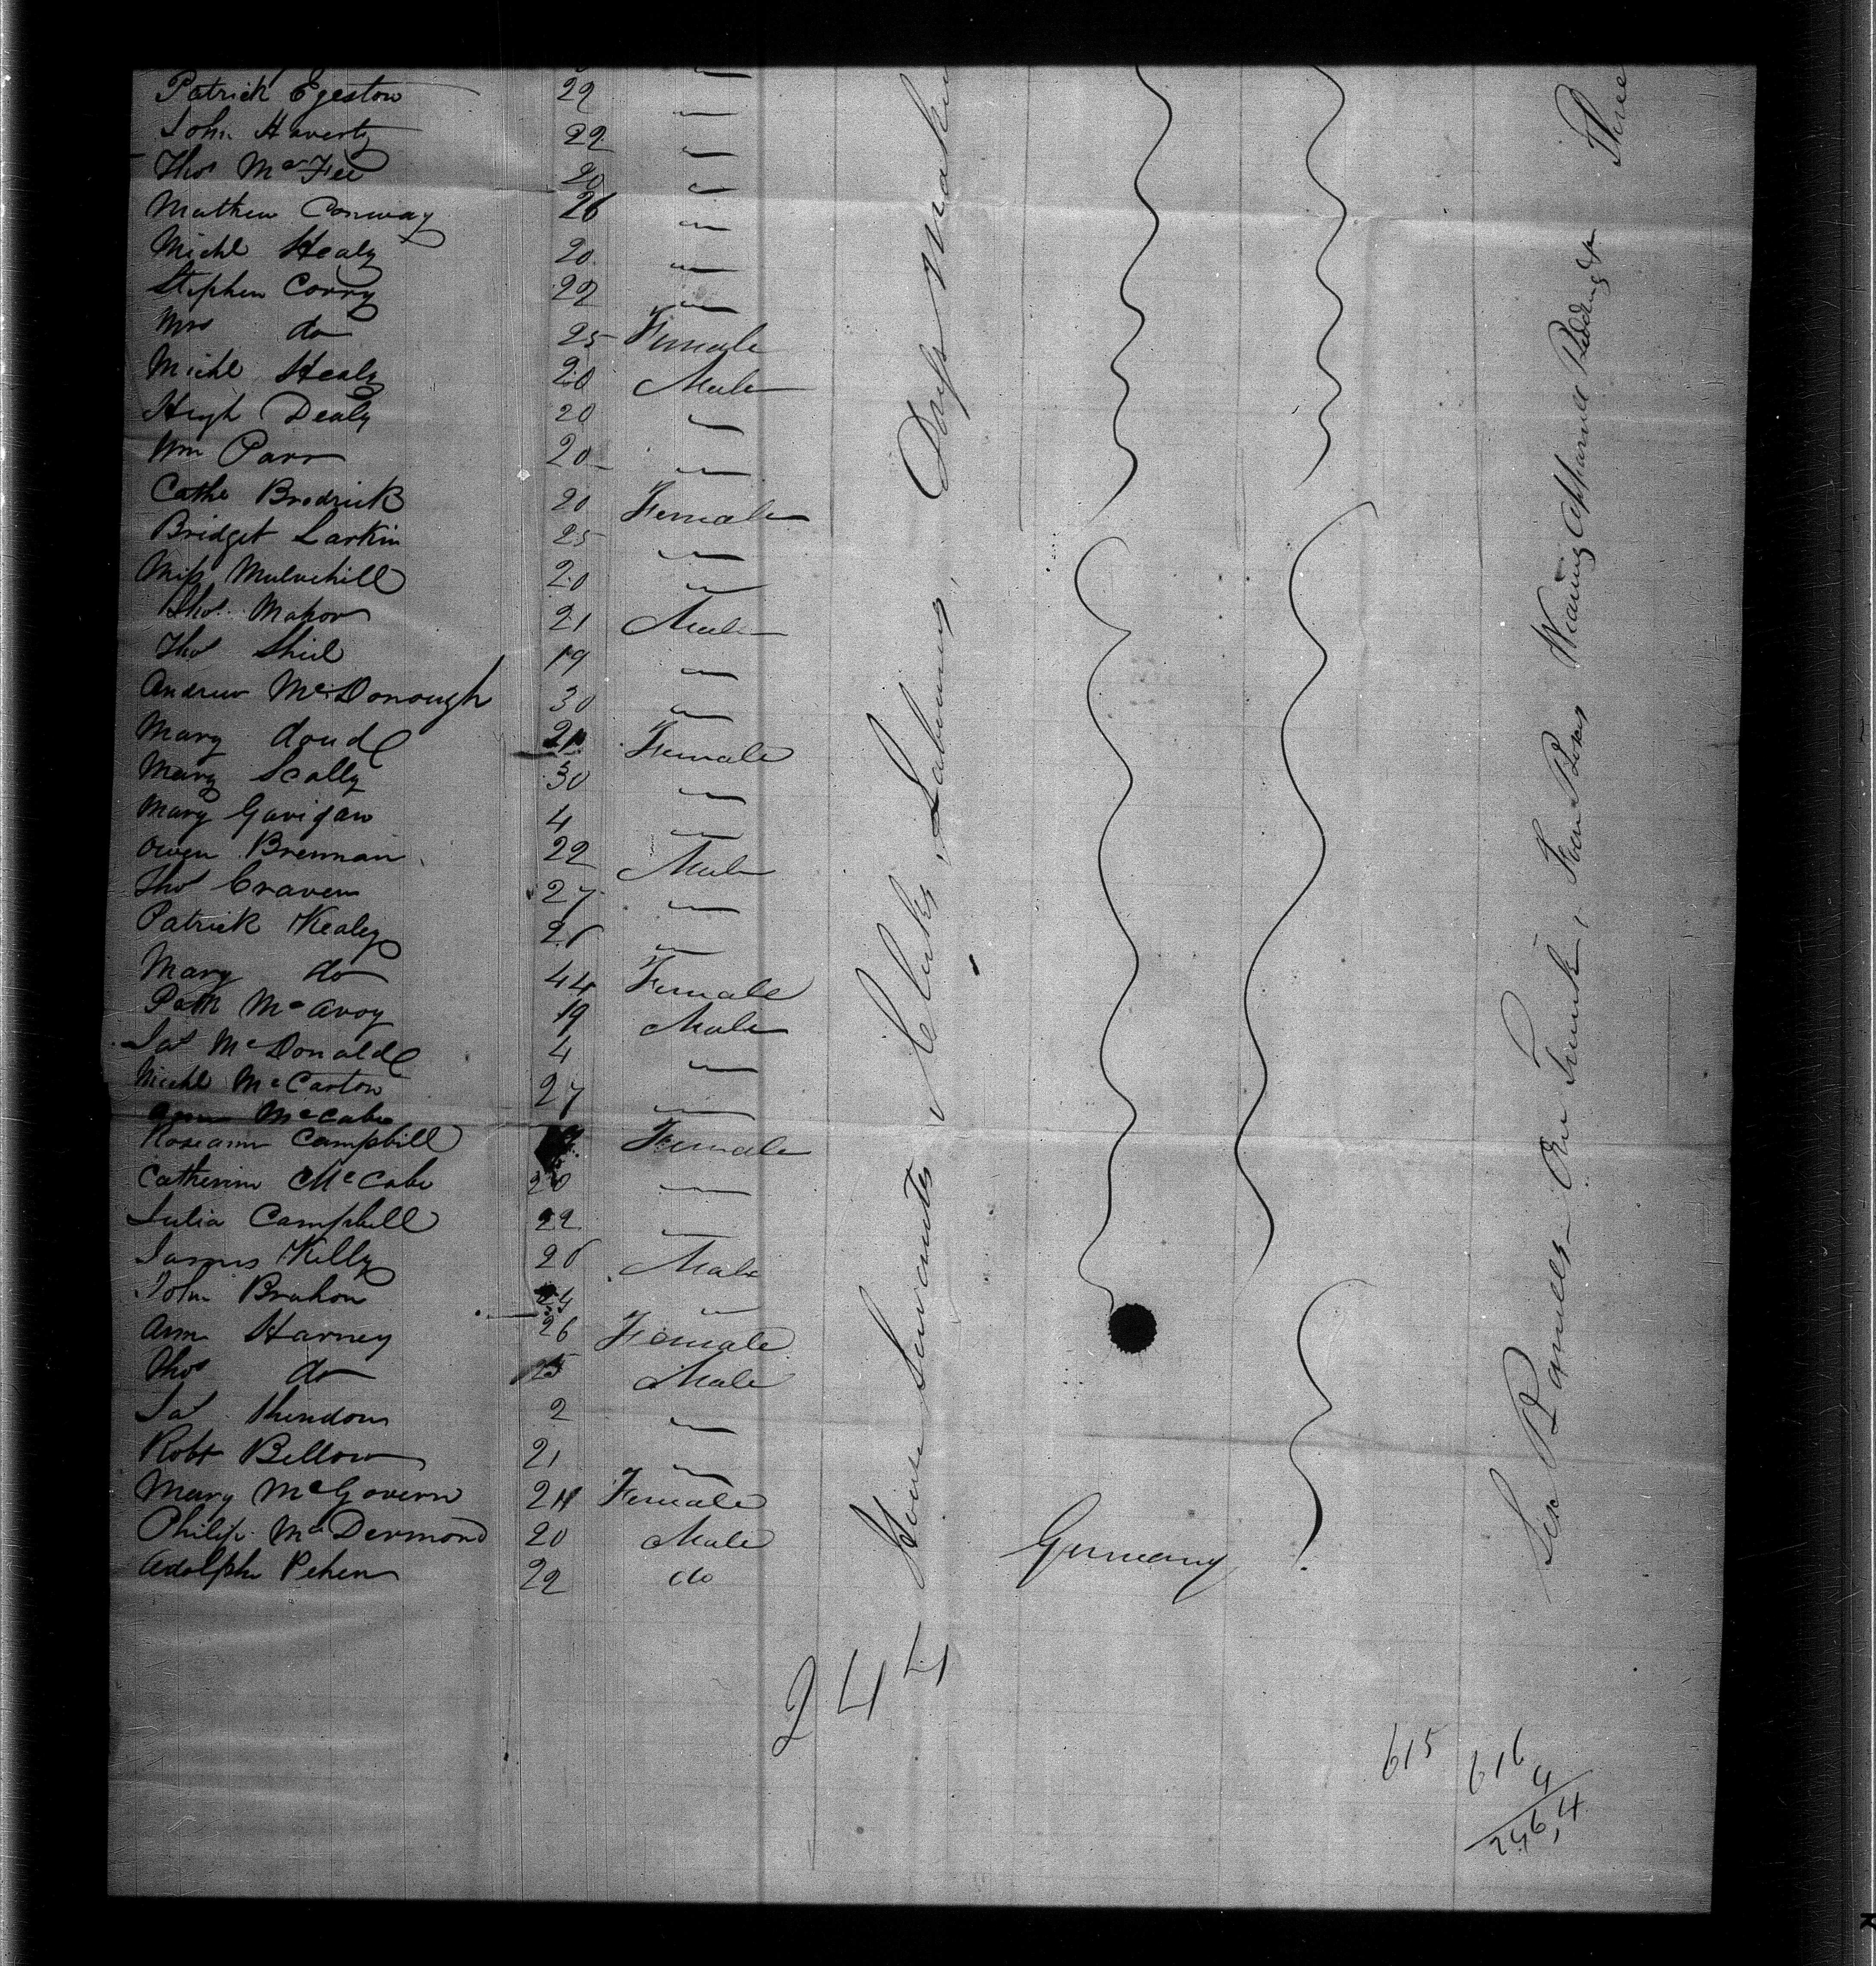 Patrick Egeston 22
John Haverty 22
Thos McFee 20
Mathew Conway 26
Michl Healy 20
Stephen Corry 22
Mrs do 25 Female
Michl Healy 20 Male
Hugh Dealy 20
Wm Parr 20
Cathe Brodrick 20 Female
Bridget Larkin 25
Miss Mulvehill 20
Thos Mahon 21 Male
Thos Shiel 19
Andrew McDonough 30
Mary doud Female
Mary Scally 30
Mary Gavigan 4
Owen Brennan 22 Male
Thos Craven 27
Patrick Kealy 26
Mary do 44 Female
Patk McAvoy 19 Male
Jas McDonald 4
Michl McCarton 27
Ann McCabe
Roseann Campbell Female
Catherine McCabe 20
Julia Campbell 22
James Kelly 26 Male
John Brahon 24
Ann Harney 26 Female
Thos do Male
Jas 2
Robt Bellow 21
Mary McGovern 24 Female
Philip McDermond 20 Male
Adolphe Pehen 22 do Germany
House Servants Clerks, Labourers, Dress Makers
Six Parcels - One Trunk, Four Boxes Wearing Apparell Bedding &c Three
244
615
616
4
246,4